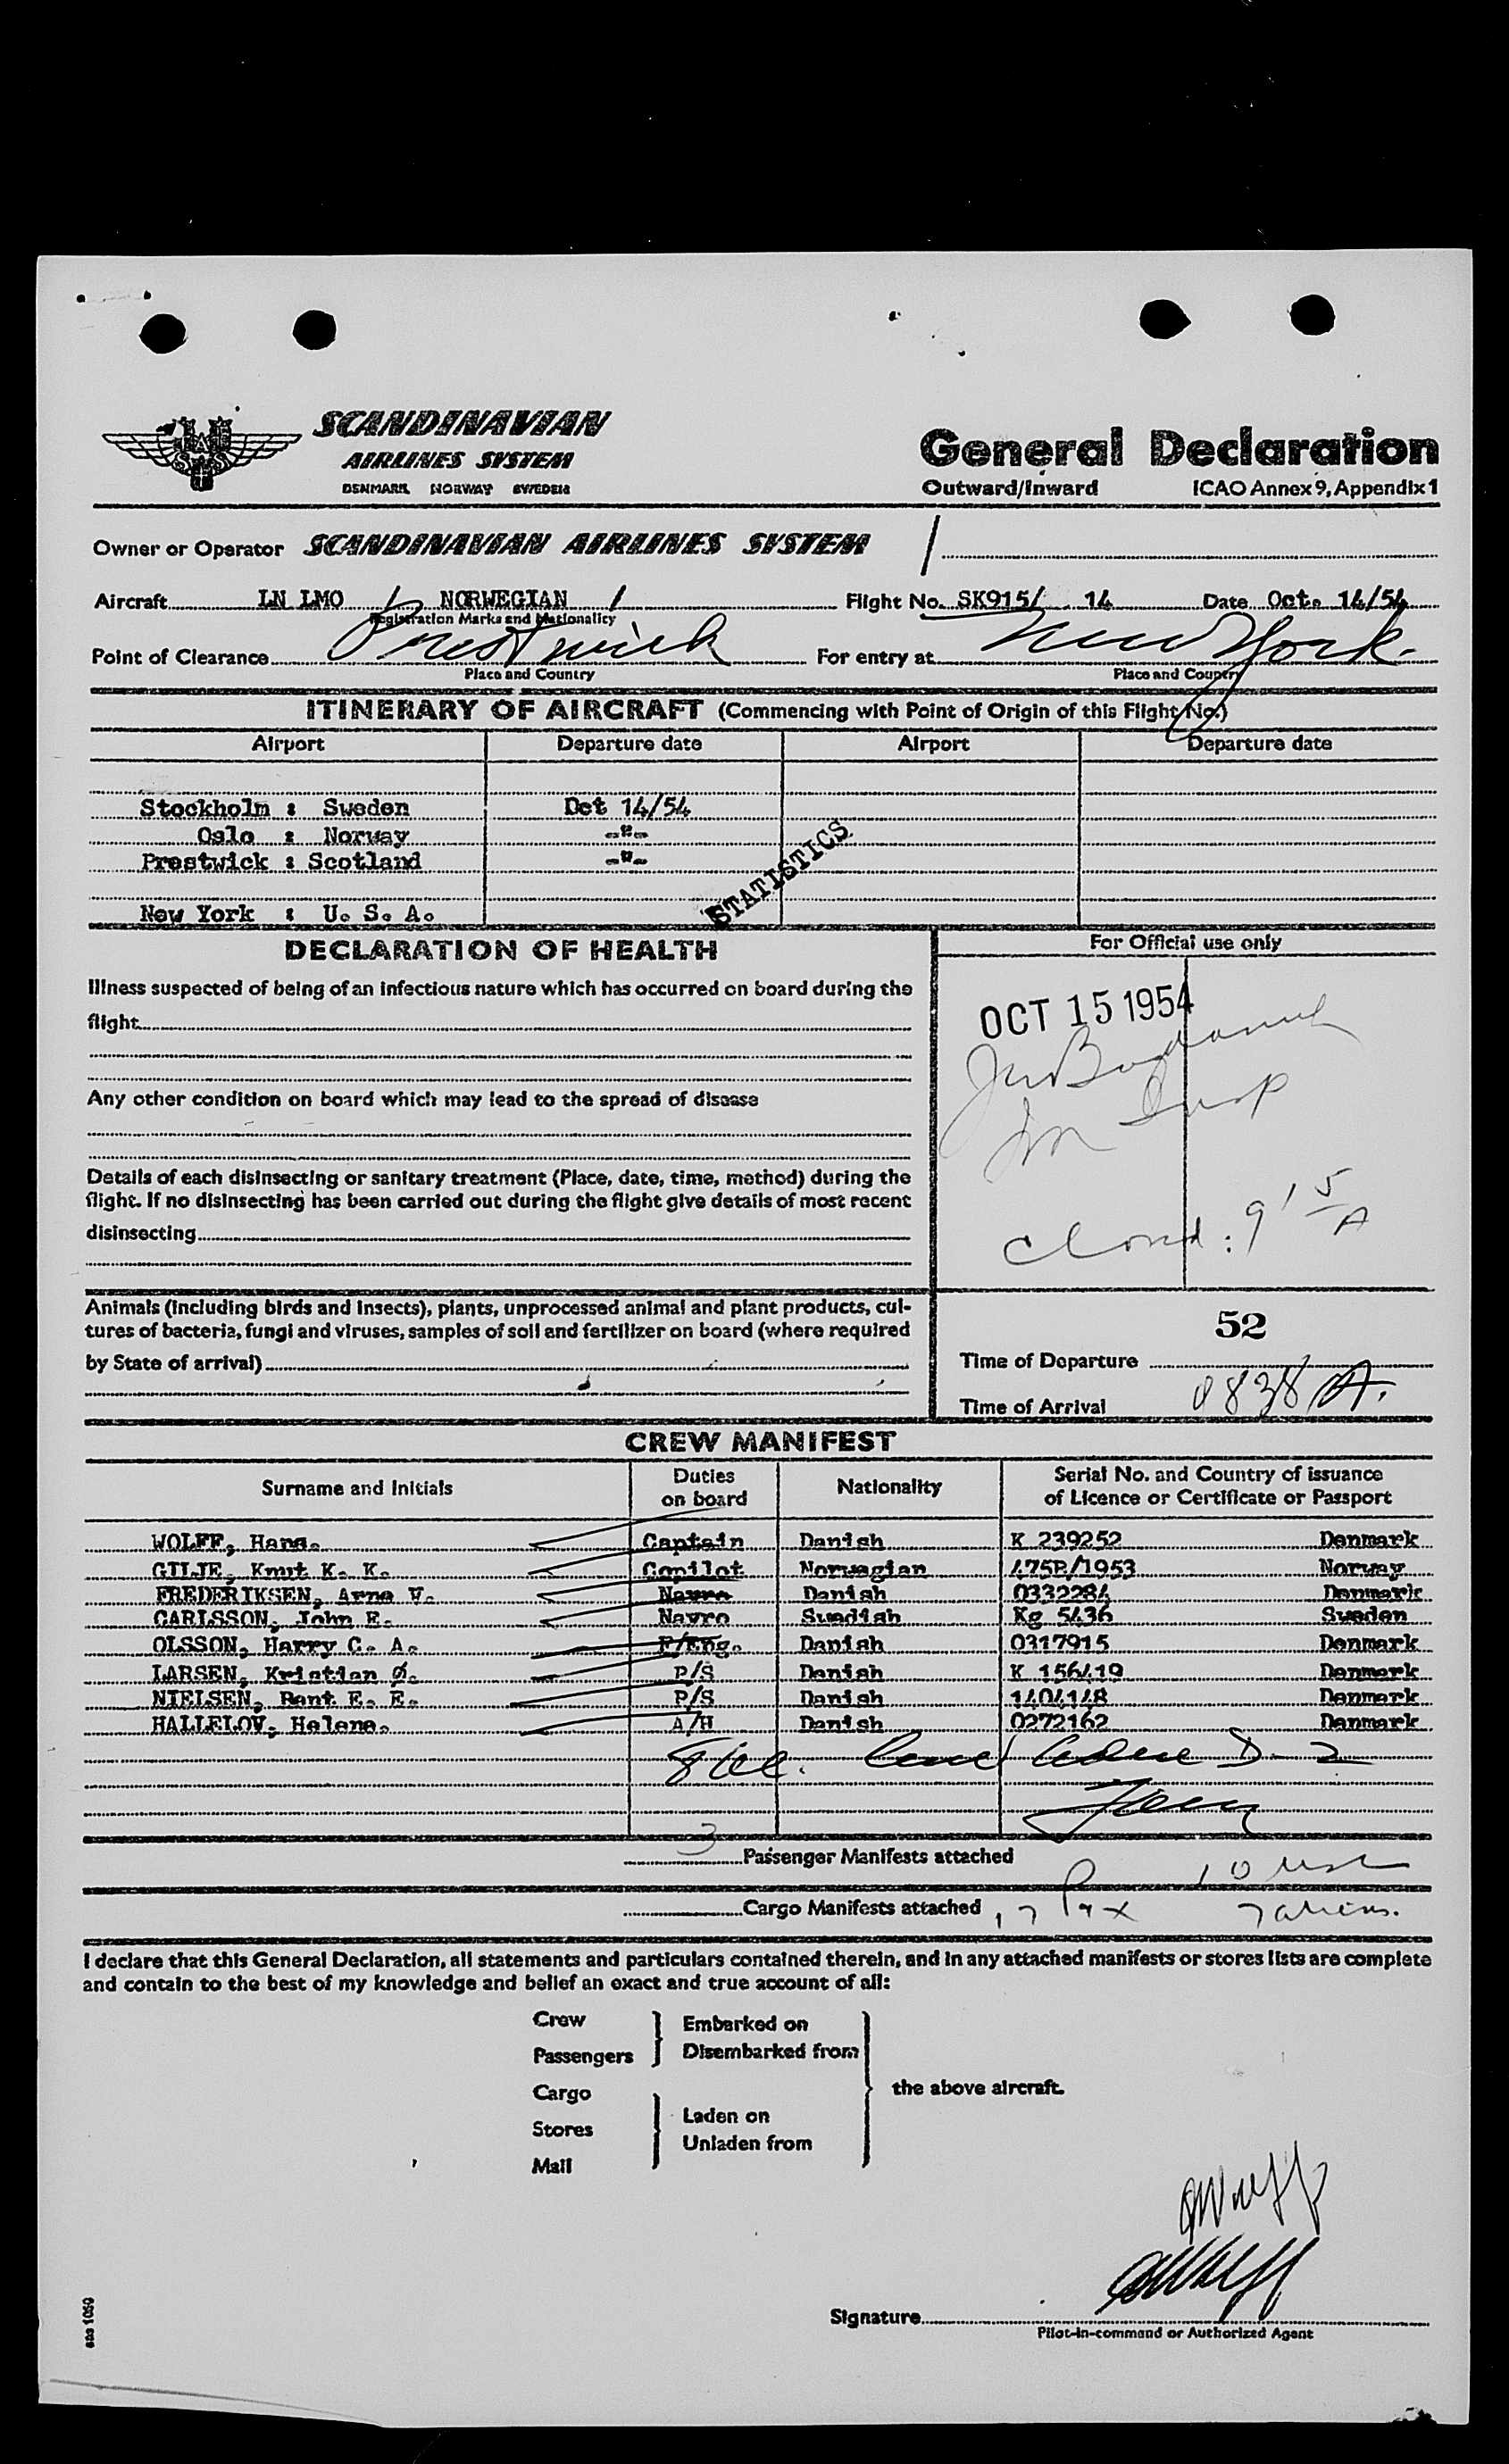 SCANDINAVIAN
AIRLINES SYSTEM
DENMARK NORWAY SWEDEN
General Declaration
Outward/Inward ICAO Annex 9, Appendix 1
Owner or Operator SCANDINAVIAN AIRLINES SYSTEM /
Aircraft LN LMO / NORWEGIAN / Flight No. SK915/ 14 Date Oct. 14/54
Registration Marks and Nationality
Point of Clearance Prestwick For entry at New York.
Place and Country Place and Country
ITINERARY OF AIRCRAFT (Commencing with Point of Origin of this Flight No.)
Airport Departure date Airport Departure date
Stockholm : Sweden Oct 14/54
Oslo : Norway -"-
Prestwick : Scotland -"-
New York : U. S. A.
STATISTICS
DECLARATION OF HEALTH
Illness suspected of being of an infectious nature which has occurred on board during the
flight
Any other condition on board which may lead to the spread of disease
Details of each disinsecting or sanitary treatment (Place, date, time, method) during the
flight. If no disinsecting has been carried out during the flight give details of most recent
disinsecting
Animals (including birds and insects), plants, unprocessed animal and plant products, cul-
tures of bacteria, fungi and viruses, samples of soil and fertilizer on board (where required
by State of arrival)
For Official use only
OCT 15 1954
Imm Insp
Closed: 9 15/A
52
Time of Departure
Time of Arrival 0838 A.
CREW MANIFEST
Surname and Initials Duties on board Nationality Serial No. and Country of issuance of Licence or Certificate or Passport
WOLFF, Hans. Captain Danish K 239252 Denmark
GILJE, Knut K. K. Copilot Norwegian 475B/1953 Norway
FREDERIKSEN, Arne V. Navro Danish 0332284 Denmark
CARLSSON, John E. Navro Swedish Kg 5436 Sweden
OLSSON, Harry C. A. F/Eng. Danish 0317915 Denmark
LARSEN, Kristian Ø. P/S Danish K 156419 Denmark
NIELSEN, Bent E. E. P/S Danish 1404148 Denmark
HALLELOV, Helene. A/H Danish 0272162 Denmark
D-2
3 Passenger Manifests attached
10 usc
Cargo Manifests attached 17 Pax 7 aliens.
I declare that this General Declaration, all statements and particulars contained therein, and in any attached manifests or stores lists are complete
and contain to the best of my knowledge and belief an exact and true account of all:
Crew
Passengers
Embarked on
Disembarked from
Cargo
Stores
Mail
Laden on
Unladen from
the above aircraft.
Signature
Pilot-in-command or Authorized Agent
sas 1050